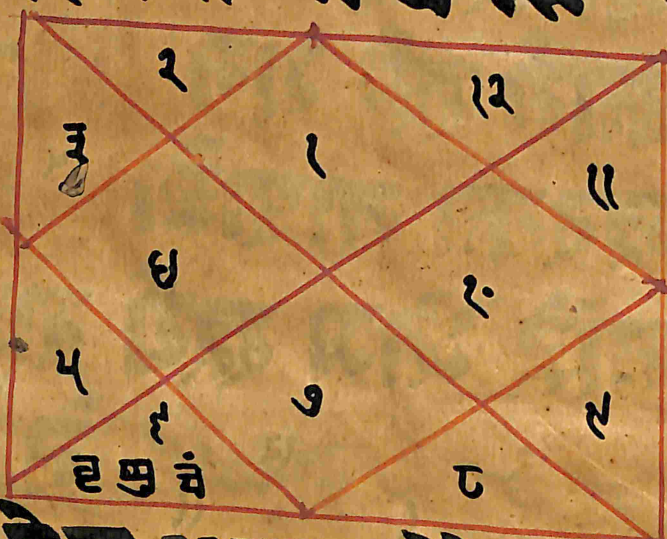 २ १२
३ १ ११
४ १०
५ ७ ९
६ ८